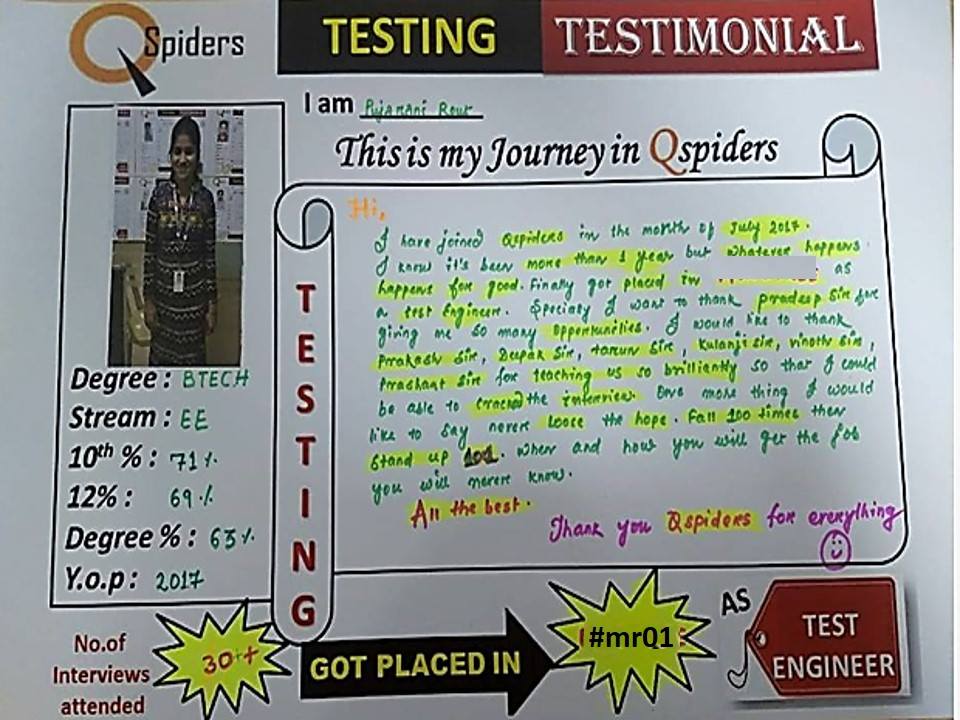 QSpiders
TESTING TESTIMONIAL
I am Pujarani Rout
This is my Journey in Qspiders
Degree : BTECH
Stream : EE
10th % : 71 %
12% : 69 %
Degree % : 63 %
Y.o.p : 2017
TESTING
Hi,
I have joined Qspiders in the month of July 2017.
I know it's been more than 1 year but whatever happens
happens for good. Finally got placed in as
a test Engineer. Specialy I want to thank pradeep Sir for
giving me so many opportunities. I would like to thank
Prakash Sir, Deepak Sir, tarun Sir, Kulanji sir, vinoth sir,
Prashant sir for teaching us so brilliantly so that I could
be able to cracked the interview. One more thing I would
like to say never loose the hope. Fall 100 times then
stand up 101. when and how you will get the job
you will never know.
All the best.
Thank you Qspiders for everything
No.of
Interviews
attended
30++
GOT PLACED IN
#mrQ1
AS
TEST
ENGINEER